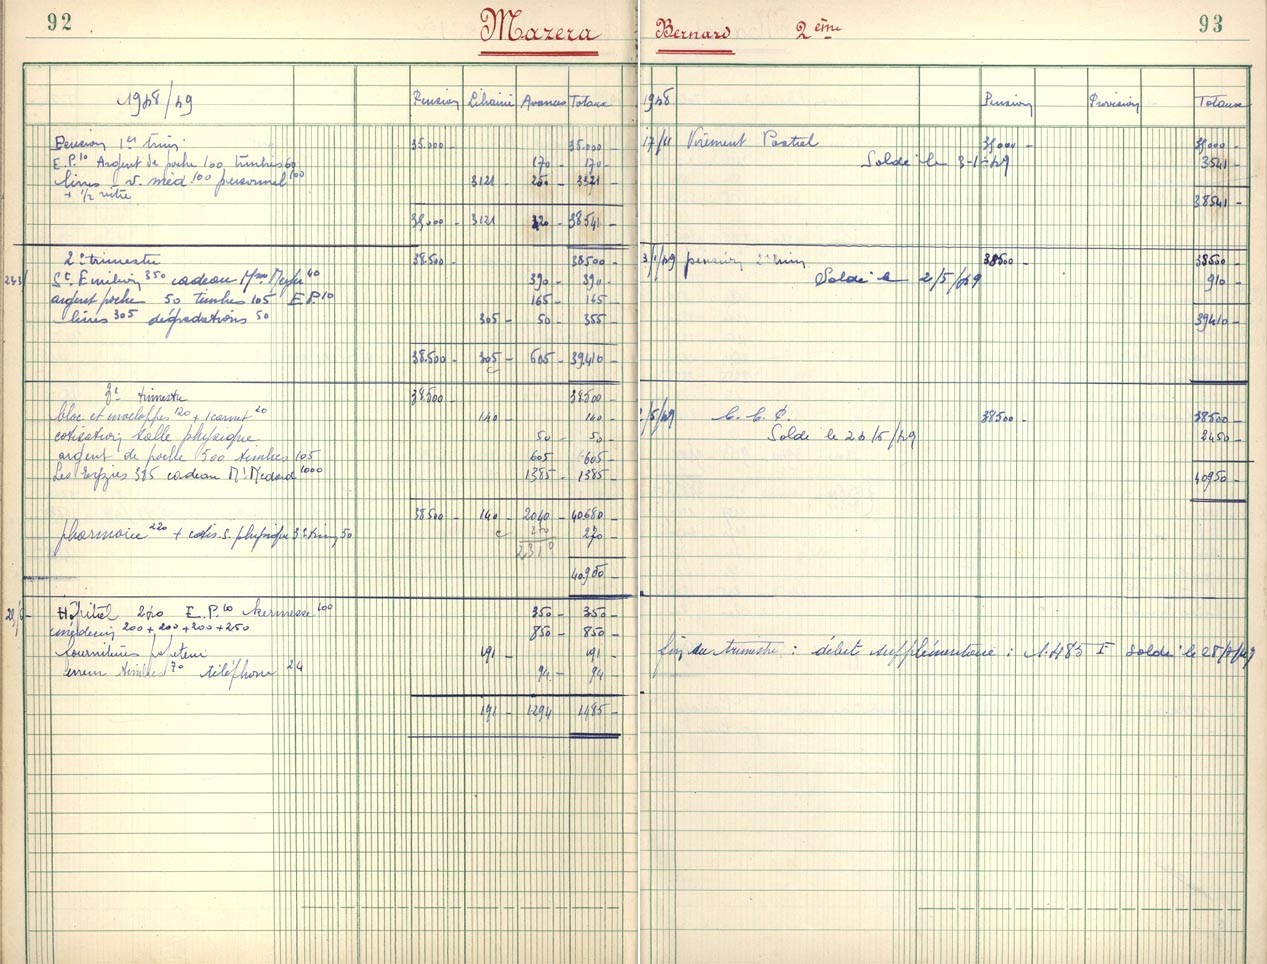 92
Mazera
1948/49 Pension Librairie Avances Totaux
Pension 1er trim 35.000 - 35.000 -
E.P.10 Argent de poche 100 timbres 60 170 - 170 -
livres v. méd. 100 personnel 100 3121 250 - 3371
+ 1/2 vitre
35,000 - 3121 38541 -
2e trimestre 38.500 - 38500 -
St Emilion 350 cadeau Mme 40 390 - 390 -
argent poche 50 timbres 105 E.P.10 165 - 165 -
livres 305 dégradations 50 305 - 50 - 355
38.500 - 305 - 605 - 39410 -
3e trimestre 38.500 - 38.500 -
bloc et enveloppes 120 + 1 carnet 20 140 - 140 -
cotisation salle physique 50 - 50 -
argent de poche 500 timbres 105 605 - 605 -
Les 385 cadeau Mr Médard 1000 1385 - 1385 -
38500 - 140 - 2040 - 40.680
pharmacie 220 + cotis. S. physique 3e trim 50 270 270 -
2310
40.950 -
Hôpital 240 E.P.10 kermesse 100 350 - 350 -
médecin 200 + 200 + 200 + 250 850 - 850 -
fournitures papeterie 191 - 191 -
erreur timbres 70 téléphone 24 94 - 94 -
191 - 1294 1485 -
Bernard 2ème
93
1948 Pension Provision Totaux
17/11 Virement Postal 35,000 - 35,000 -
Soldé le 3-1-49 3541 -
38541 -
3/1/49 pension 2e trim 38500 - 38500 -
Soldé le 2/5/49 910 -
39410 -
2/5/49 C. C. P. 38500 - 38500 -
Soldé le 26/5/49 2450 -
40950 -
fin du trimestre : débit supplémentaire : 1.485 F Soldé le 28/7/49